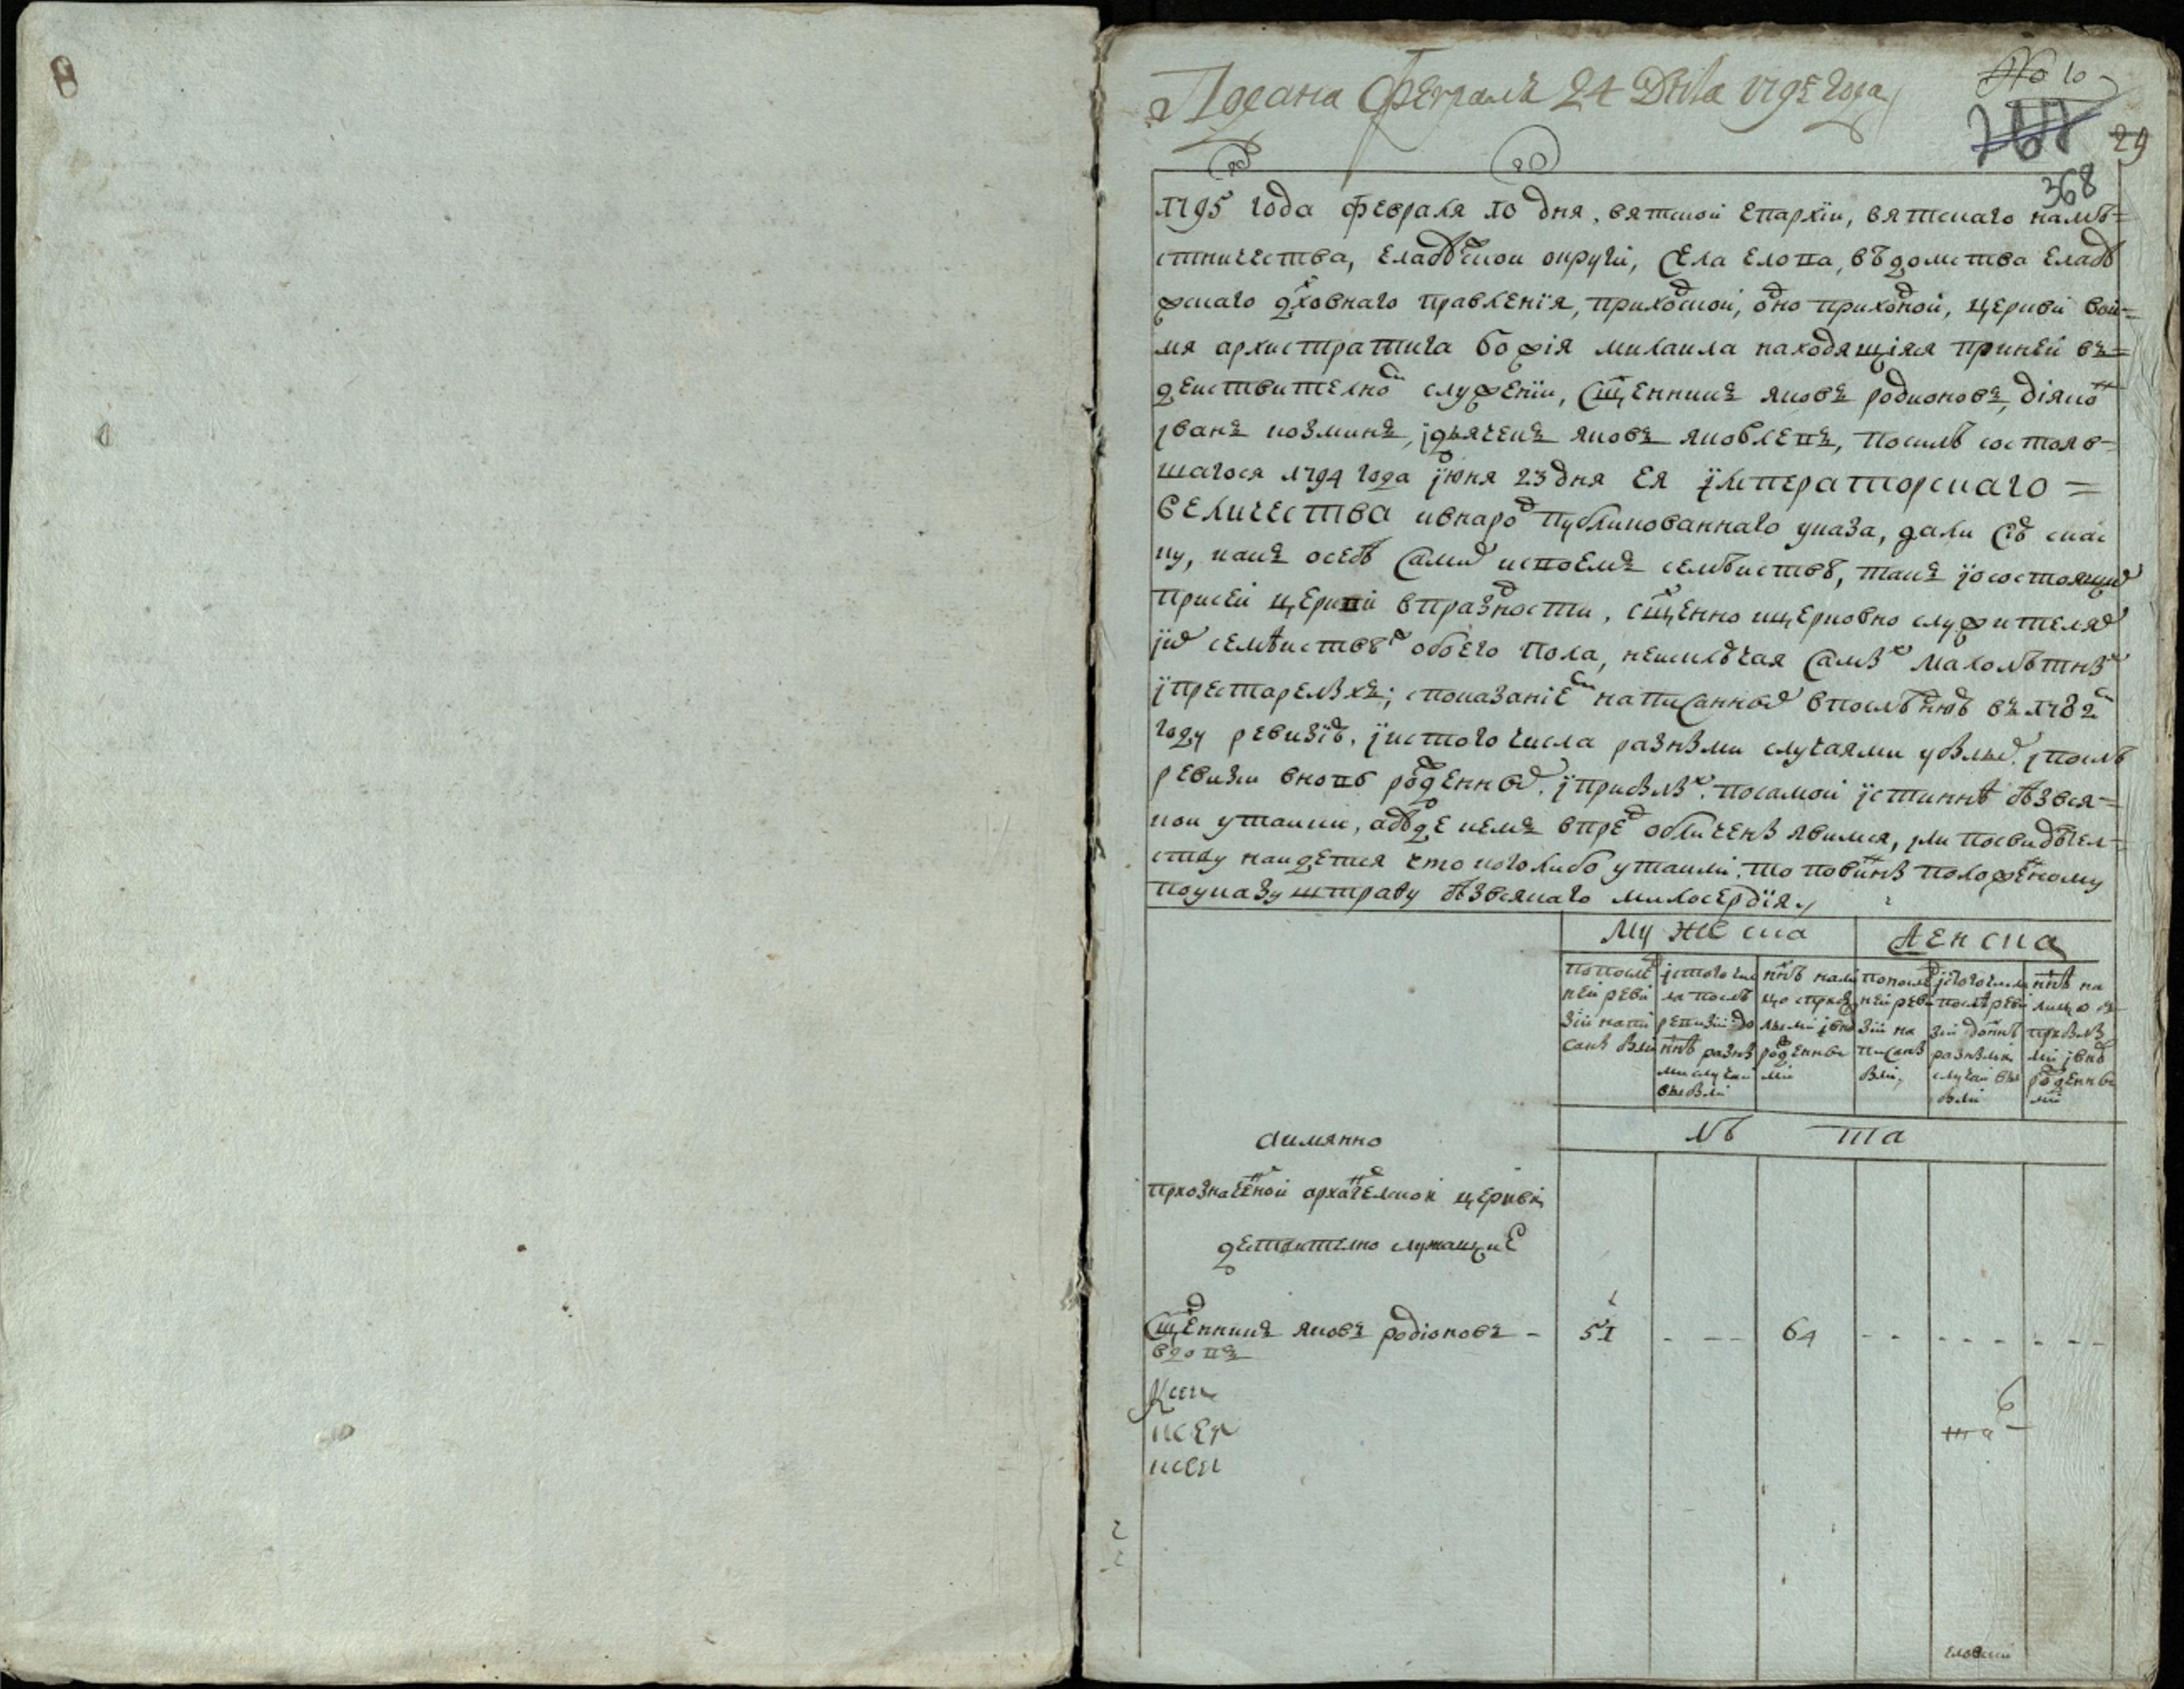 Подана Февраля 24 Дня 1795 Года
№ 10
29
368
1795 года февраля 10 дня, вятской епархїи, вятскаго намѣ=
стничества, елабѣской округи, села елова, вѣдомства елабѣ
жскаго дховнаго правленїя, приходской, одно приходной, церкви вои=
мя архистратига божїя михаила находящїяся приней въ=
деиствителном служенїи, сщенникъ яковъ родионовъ, дїякон
іванъ козминъ, ідьячекъ яковъ яковлевъ, посилѣ состояв=
шагося 1794 года їюня 23 дня Ея їмператорскаго =
Величества ивнарод публикованнаго указа, дали сїю скас
ку, какъ осебѣ самих исвоемъ семѣиствѣ, такъ їосостоящих
присеи церкви впраздности, сщенно ицерковно служителях
їих семѣиствах обоего пола, неисключая самых малолѣтных
їпрестарелыхъ; споказанїем написанных впослѣднюю въ 1782м
году ревизїю, їистого числа разными случаями убылых, іпослѣ
ревизїи вновь рожденных, їприбылых, посамой їстиннѣ безвся=
кои утаики, абуде кемъ впред обличены явимся, или посвидѣтел=
ству наидется что коголибо утаили, то повинны положеному
поуказу штрафу безвсякаго милосердїя,
Мужеска
Женска
попослѣд
ней реви
зїи напи
саны были
їстого чис
ла послѣ
ревизїи до
ннѣ разны
ми случаи
выбыли
ннѣ нали
цо сприбы
лыми івно
рожденны
ми
попослѣд
ней реви
зїи на
писаны
были,
їстого числа
послѣ реви
зїи доннѣ
разными
случаи вы
были
ннѣ на
лицо съ
прибылы
ми івно
рожденны
ми
аимянно
Лѣ та
приозначеной архангелской церкви
деиствително служащие
Сщенникъ яковъ родїоновъ - 51 - - - 64 - - - - - - - - -
вдовъ